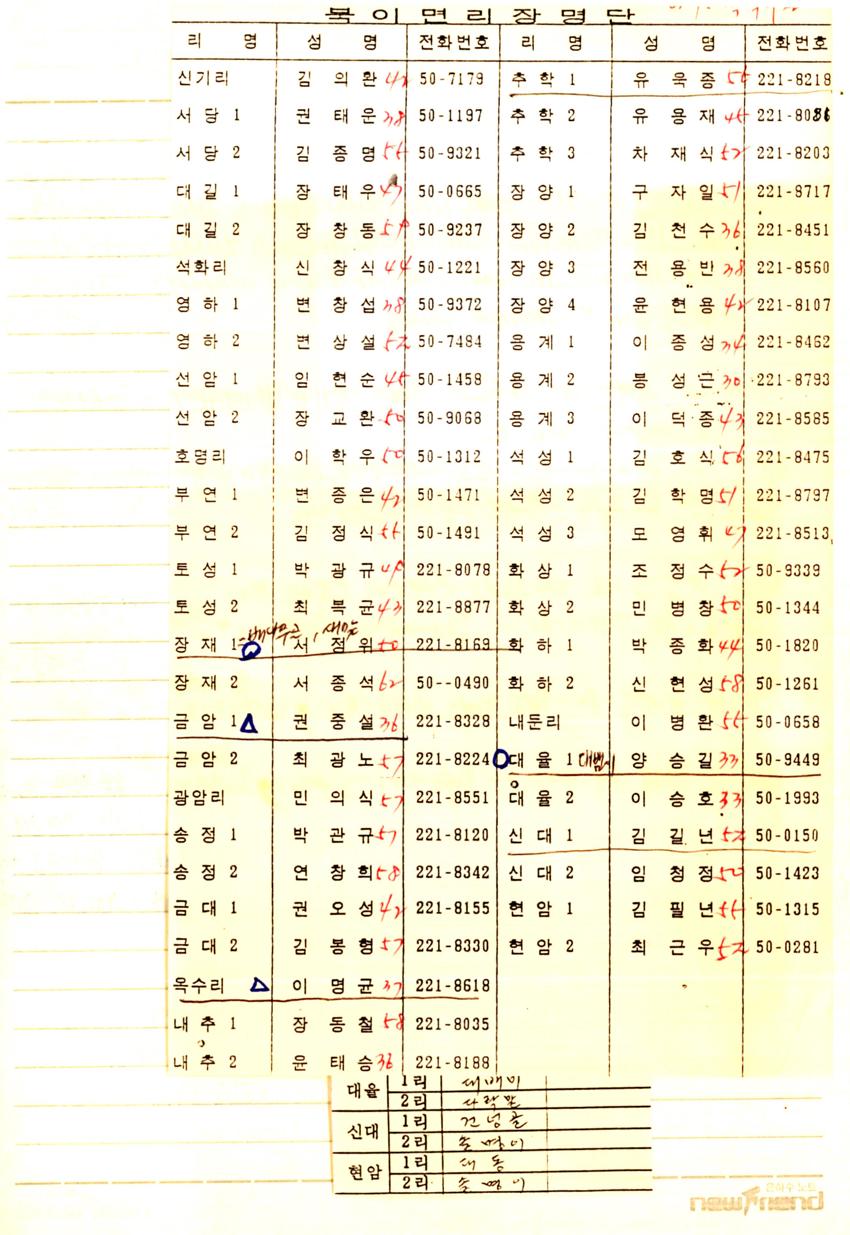 북이면리장명단
리 명 성 명 전화번호 리 명 성 명 전화번호
신기리 김 의 환 47 50-7179 추 학 1 유 욱 종 221-8218
서 당 1 권 태 운 38 50-1197 추 학 2 유 용 재 221-8086
서 당 2 김 종 명 50-9321 추 학 3 차 재 식 221-8203
대 길 1 장 태 우 50-0665 장 양 1 구 자 일 51 221-8717
대 길 2 장 창 동 50-9237 장 양 2 김 천 수 36 221-8451
석화리 신 창 식 44 50-1221 장 양 3 전 용 반 38 221-8560
영 하 1 변 창 섭 38 50-9372 장 양 4 윤 현 용 221-8107
영 하 2 변 상 설 50-7484 용 계 1 이 종 성 34 221-8462
선 암 1 임 현 순 50-1458 용 계 2 봉 성 근 30 221-8793
선 암 2 장 교 환 50 50-9068 용 계 3 이 덕 종 43 221-8585
호명리 이 학 우 50 50-1312 석 성 1 김 호 식 56 221-8475
부 연 1 변 종 은 50-1471 석 성 2 김 학 명 51 221-8797
부 연 2 김 정 식 50-1491 석 성 3 모 영 휘 47 221-8513
토 성 1 박 광 규 221-8078 화 상 1 조 정 수 50-9339
토 성 2 최 복 균 43 221-8877 화 상 2 민 병 창 50 50-1344
장 재 1 서 정 위 50 221-8169 화 하 1 박 종 화 44 50-1820
장 재 2 서 종 석 62 50--0490 화 하 2 신 현 성 58 50-1261
금 암 1 권 중 설 36 221-8328 내둔리 이 병 환 50-0658
금 암 2 최 광 노 57 221-8224 대 율 1 양 승 길 33 50-9449
광암리 민 의 식 57 221-8551 대 율 2 이 승 호 33 50-1993
송 정 1 박 관 규 57 221-8120 신 대 1 김 길 년 52 50-0150
송 정 2 연 창 희 58 221-8342 신 대 2 임 청 정 50 50-1423
금 대 1 권 오 성 42 221-8155 현 암 1 김 필 년 50-1315
금 대 2 김 봉 형 57 221-8330 현 암 2 최 근 우 52 50-0281
옥수리 이 명 균 37 221-8618
내 추 1 장 동 철 58 221-8035
내 추 2 윤 태 승 36 221-8188
대율 1리
2리
신대 1리 건넝골
2리 송명이
현암 1리 대동
2리 송명이
은하수노트
newfriend